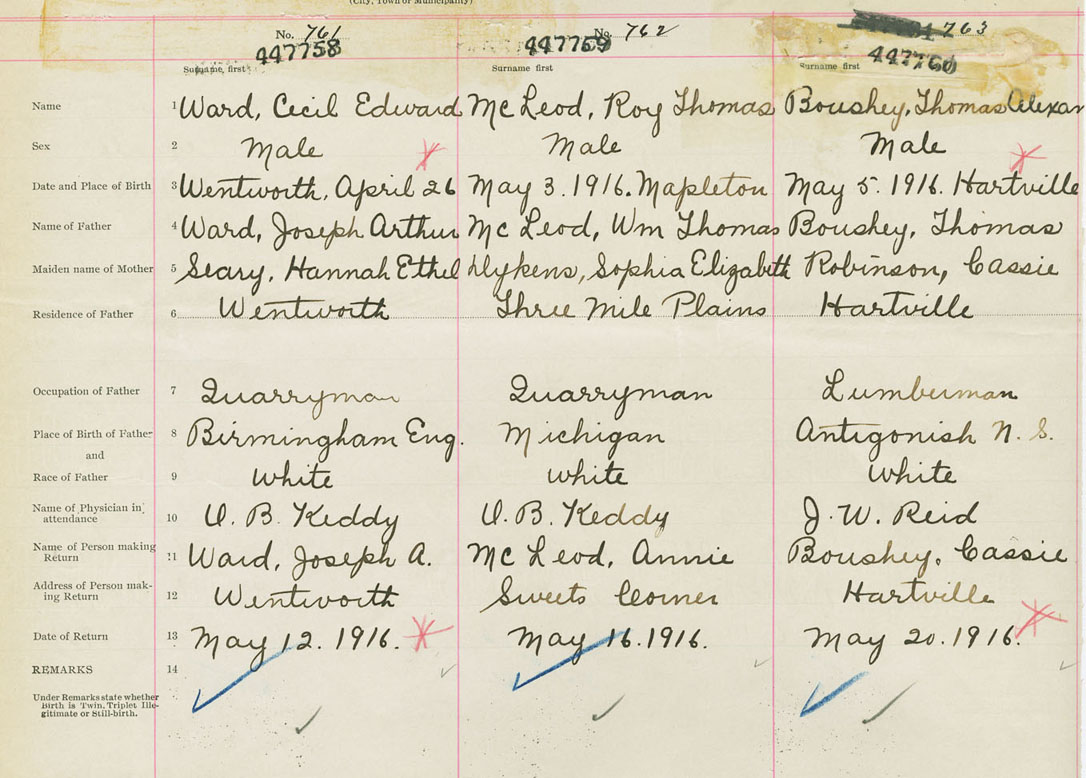 (City, Town or Municipality)
No. 761 No. 762 763
447758 447759 447760
Surname first Surname first Surname first
Name 1 Ward, Cecil Edward Mc Leod, Roy Thomas Boushey, Thomas Alexan
Sex 2 Male Male Male
Date and Place of Birth 3 Wentworth, April 26 May 3. 1916. Mapleton May 5. 1916. Hartville
Name of Father 4 Ward, Joseph Arthur Mc Leod, Wm Thomas Boushey, Thomas
Maiden name of Mother 5 Seary, Hannah Ethel Dykens, Sophia Elizabeth Robinson, Cassie
Residence of Father 6 Wentworth Three Mile Plains Hartville
Occupation of Father 7 Quarryman Quarryman Lumberman
Place of Birth of Father 8 Birmingham Eng. Michigan Antigonish N. S.
and
Race of Father 9 White White White
Name of Physician in
attendance 10 B. Keddy B. Keddy J. W. Reid
Name of Person making
Return 11 Ward, Joseph A. Mc Leod, Annie Boushey, Cassie
Address of Person mak-
ing Return 12 Wentworth Sweets Corner Hartville
Date of Return 13 May 12. 1916. May 16. 1916. May 20. 1916.
REMARKS 14
Under Remarks state whether
Birth is Twin, Triplet Ille-
gitimate or Still-birth.